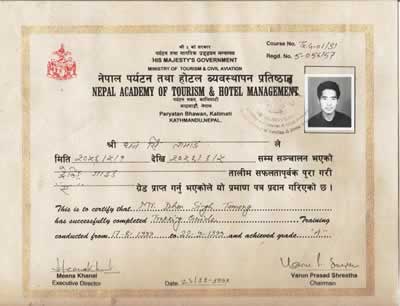 Course No. Tg-01/51
श्री ५ को सरकार
Regd. No. 5-056/57
HIS MAJESTY'S GOVERNMENT
MINISTRY OF TOURISM & CIVIL AVIATION
नेपाल पर्यटन तथा होटल व्यवस्थापन प्रतिष्ठान
NEPAL ACADEMY OF TOURISM & HOTEL MANAGEMENT
पर्यटन भवन, कालिमाटी
काठमाडौं, नेपाल
Paryatan Bhawan, Kalimati
KATHMANDU, NEPAL.
श्री धन सिं तामाङ ले
मिति देखि सम्म सञ्चालन भएको
ट्रेकिङ गाइड तालीम सफलतापूर्वक पूरा गरी
ग्रेड प्राप्त गर्नु भएकोले यो प्रमाण पत्र प्रदान गरिएको छ।
This is to certify that Mr. Dhan Singh Tamang
has successfully completed Trekking Guide Training
conducted from to and achieved grade 'A'
Meena Khanal
Executive Director
Date.
Varun Prasad Shrestha
Chairman